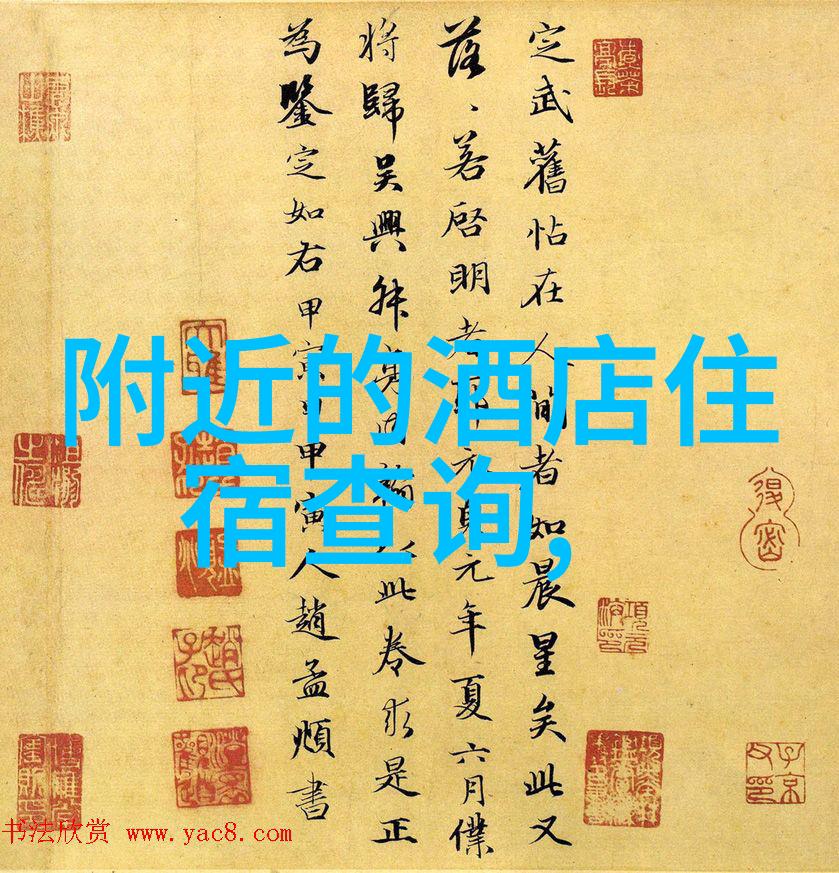 附近的酒店住
宿查询,
定武舊帖在人間者如晨星矣此又
落、若啓明者耶元貞元年夏六月僕
將歸吳興叔亮內翰以此卷求是正
為鑒定如右甲寅日甲寅人趙孟頫書
书法欣赏 www.yac8.com